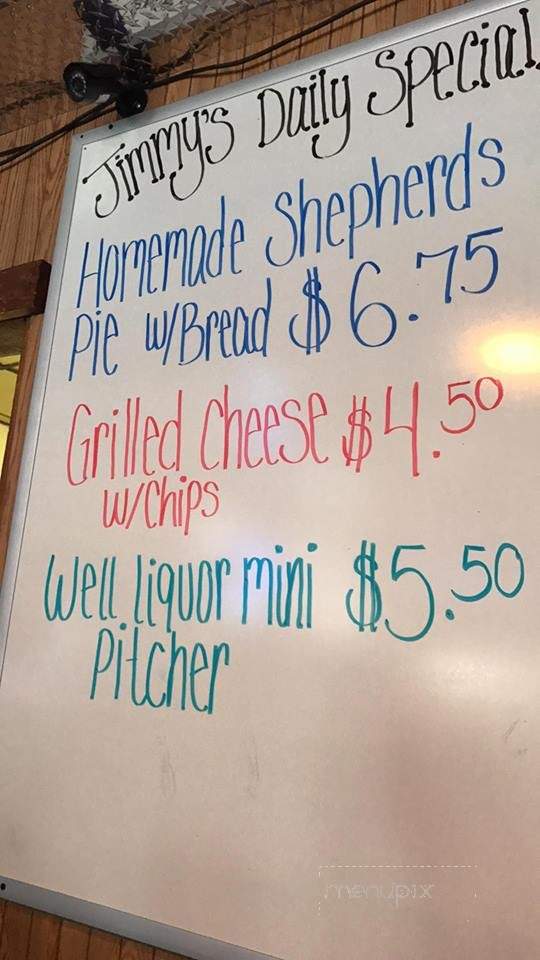 Jimmy's Daily Special
Homemade Shepherds
Pie w/Bread $6.75
Grilled Cheese $4.50
w/Chips
Well liquor mini $5.50
Pitcher
menupix